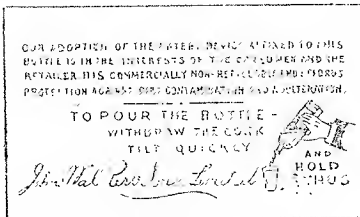 OUR ADOPTION OF THE PATENT DEVICE AFFIXED TO THIS
BOTTLE IS IN THE INTERESTS OF THE CONSUMER AND THE
RETAILER. IT IS COMMERCIALLY NON-REFILLABLE AND AFFORDS
PROTECTION AGAINST CONTAMINATION AND ADULTERATION.
TO POUR THE BOTTLE -
WITHDRAW THE CORK
TILT QUICKLY
AND
HOLD
THUS
John Limited